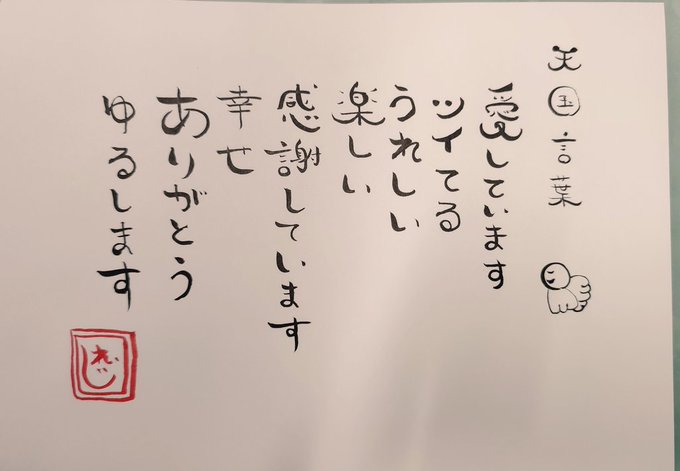 天国言葉
愛しています
ツイてる
うれしい
楽しい
感謝しています
幸せ
ありがとう
ゆるします